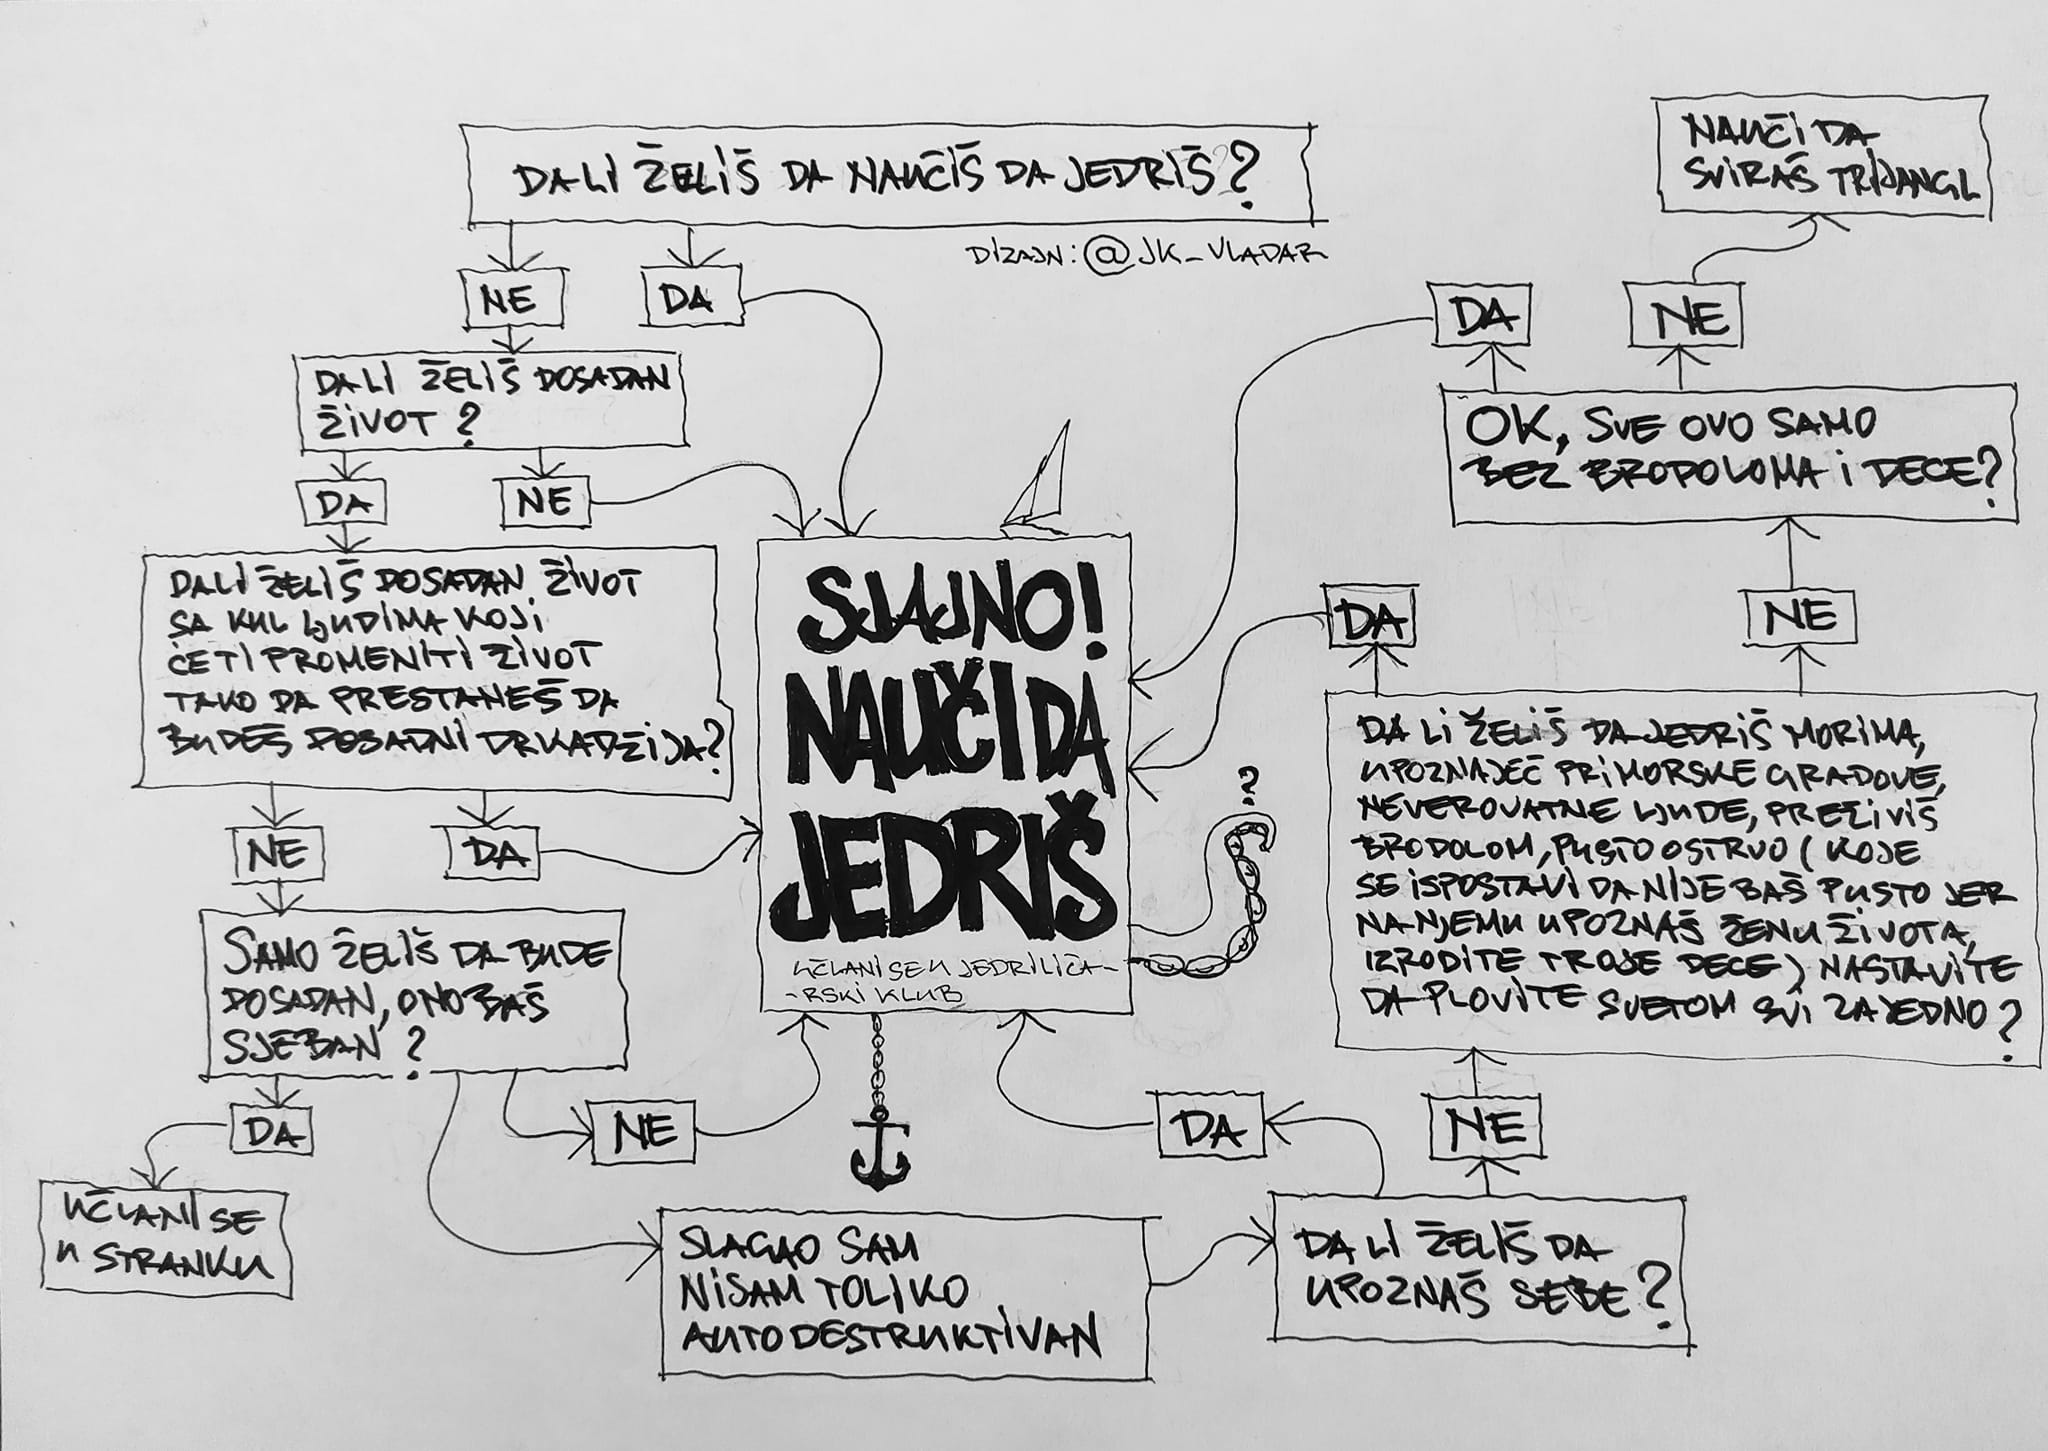 DA LI ŽELIŠ DA NAUČIŠ DA JEDRIŠ?
DIZAJN: @JK_VLADAR
NE
DA
DA LI ŽELIŠ DOSADAN
ŽIVOT?
DA
NE
DA LI ŽELIŠ DOSADAN ŽIVOT
SA KUL LJUDIMA KOJI
ĆE TI PROMENITI ŽIVOT
TAKO DA PRESTANEŠ DA
BUDEŠ DOSADNI DRKADŽIJA?
NE
DA
SAMO ŽELIŠ DA BUDE
DOSADAN, ONO BAŠ
SJEBAN?
DA
NE
UČLANI SE
U STRANKU
SJAJNO!
NAUČI DA
JEDRIŠ
UČLANI SE U JEDRILIČA-
-RSKI KLUB
?
SLAGAO SAM
NISAM TOLIKO
AUTODESTRUKTIVAN
DA LI ŽELIŠ DA
UPOZNAŠ SEBE?
DA
NE
DA LI ŽELIŠ DA JEDRIŠ MORIMA,
UPOZNAJEČ PRIMORSKE GRADOVE,
NEVEROVATNE LJUDE, PREŽIVIŠ
BRODOLOM, PUSTO OSTRVO (KOJE
SE ISPOSTAVI DA NIJE BAŠ PUSTO JER
NA NJEMU UPOZNAŠ ŽENU ŽIVOTA,
IZRODITE TROJE DECE) NASTAVITE
DA PLOVITE SVETOM SVI ZAJEDNO?
DA
NE
OK, SVE OVO SAMO
BEZ BRODOLOMA I DECE?
DA
NE
NAUČI DA
SVIRAŠ TRIJANGL